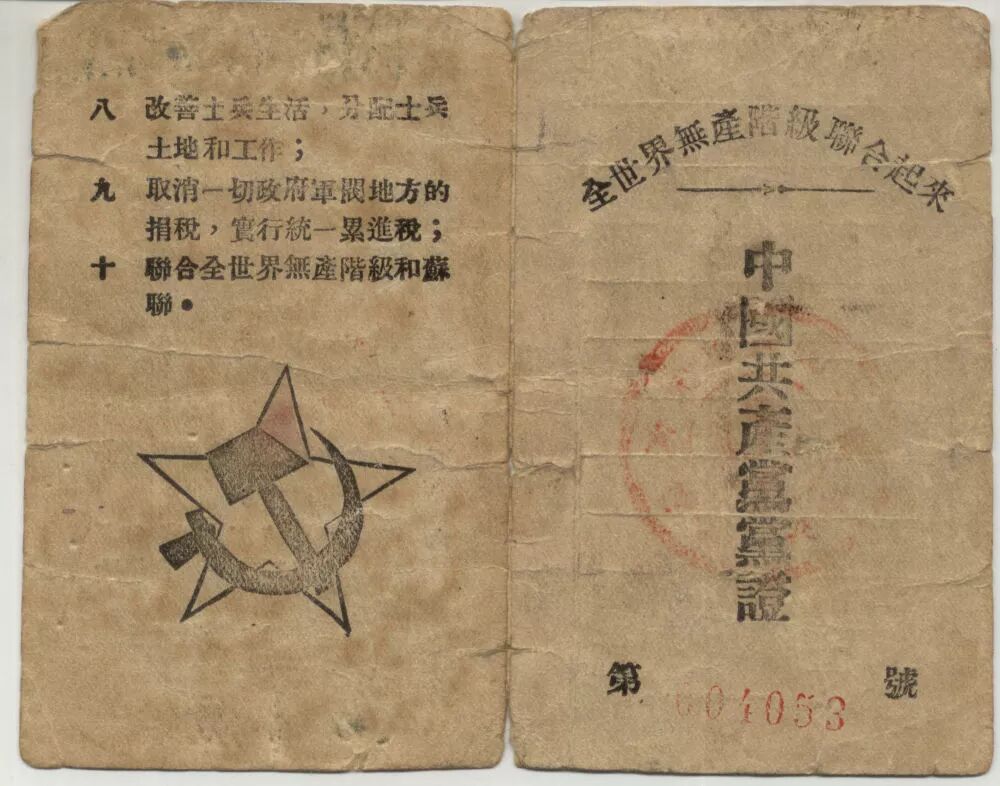 八 改善士兵生活，分配士兵
土地和工作；
九 取消一切政府軍閥地方的
捐稅，實行統一累進稅；
十 聯合全世界無產階級和蘇
聯。
全世界無產階級聯合起來
中國共產黨黨證
第 004053 號